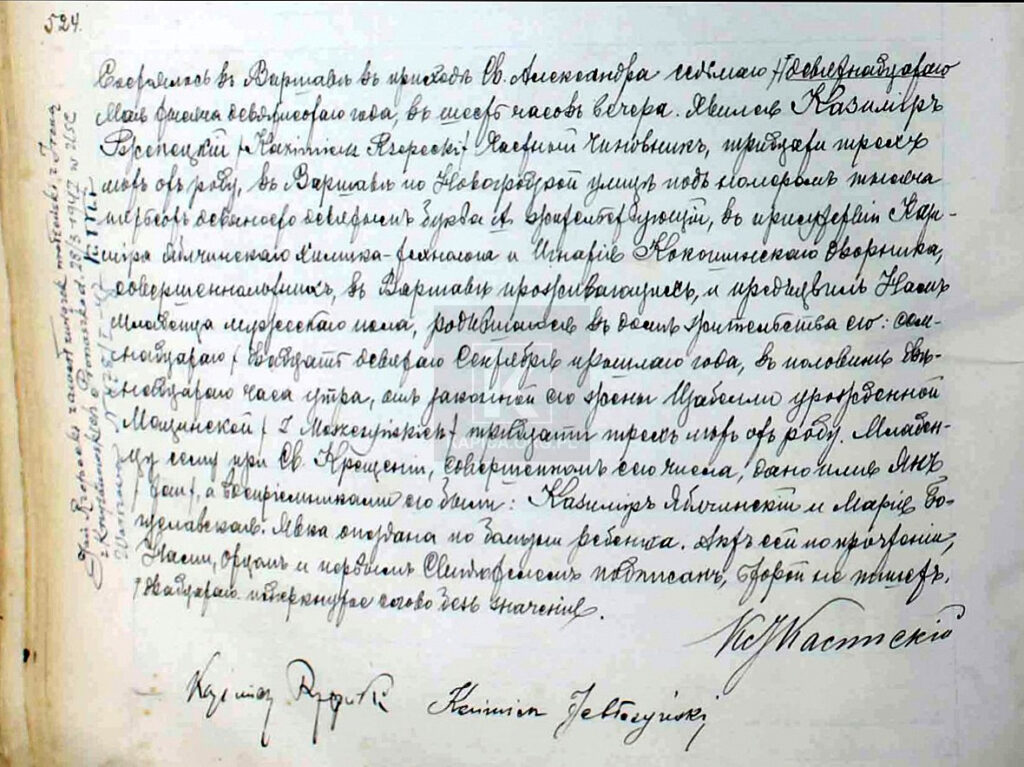 524.
Состоялось въ Варшавѣ въ приходѣ Св. Александра седьмаго /девятнадцатаго
Мая тысяча девятисотаго года, въ шесть часовъ вечера. Явился Казимиръ
Ржепецкій /Kazimierz Rzepecki/ Частный Чиновникъ, тридцати трехъ
лѣтъ отъ роду, въ Варшавѣ по Новогродской улицѣ подъ номеромъ тысяча
девяносто девятымъ буква А жительствующій, въ присутствіи Кази-
міра Яблчинскаго Химика-технолога и Игнатія Кокошинскаго Дворника,
совершеннолѣтнихъ, въ Варшавѣ проживающихъ, и предъявилъ Намъ
Младенца мужескаго пола, родившагося въ домѣ жительства его: сем-
надцатаго / двадцать девятаго Сентября прошлаго года, въ половинѣ
часа утра, отъ законной его жены Изабелли урожденной
Мощинской / z / тридцати трехъ лѣтъ отъ роду. Младен-
цу сему при Св. Крещеніи, совершенномъ сего числа, дано имя Янъ
/ Jan /, а воспріемниками его были: Казимиръ Яблчинскій и Марія Бо-
гуславская. Явка опоздана по болѣзни ребенка. Актъ сей по прочтеніи,
Нами, Отцомъ и первымъ Свидѣтелемъ подписанъ, второй не пишетъ.
/двадцатаго подчеркнутое слово безъ значенія.
Kazimierz Rzepecki Kazimierz Jabłczyński
Jan Rzepecki zawarł związek małżeński z Ireną
w USC
Warszawa
K